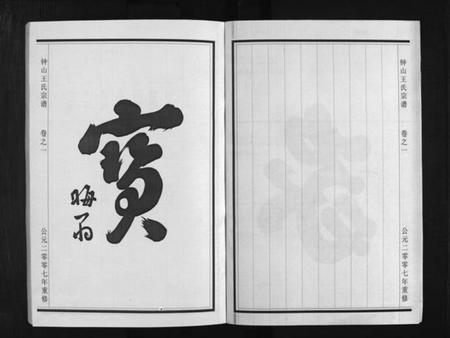 钟山王氏宗谱
卷之一
公元二零零七年重修
寳
晦翁
钟山王氏宗谱
卷之一
公元二零零七年重修